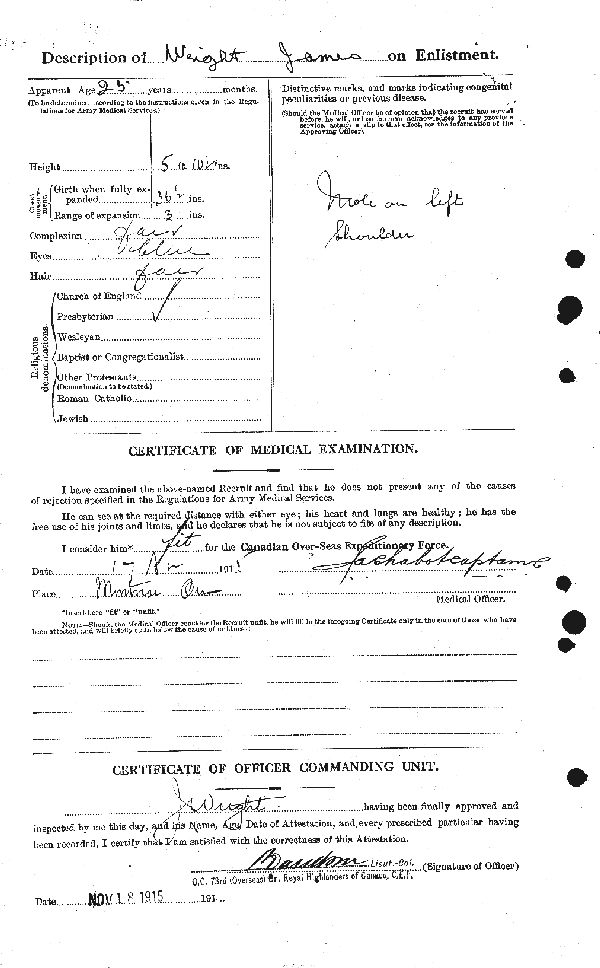 Description of Wright James on Enlistment.
Apparent Age 25 years months.
(To be determined according to the instructions given in the Regulations for Army Medical Services.)
Distinctive marks, and marks indicating congenital
peculiarities or previous disease.
(Should the Medical Officer be of opinion that the recruit has served
before, he will, unless the man acknowledges to any previous
service, attach a slip to that effect, for the information of the
Approving Officer).
Height 5 ft. ins.
Chest measurement.
Girth when fully expanded 36½ ins.
Range of expansion 3 ins.
Mole on left
Shoulder
Complexion fair
Eyes blue
Hair fair
Religious denominations.
Church of England
Presbyterian
Wesleyan
Baptist or Congregationalist
Other Protestants
(Denomination to be stated.)
Roman Catholic
Jewish
CERTIFICATE OF MEDICAL EXAMINATION.
I have examined the above-named Recruit and find that he does not present any of the causes
of rejection specified in the Regulations for Army Medical Services.
He can see at the required distance with either eye; his heart and lungs are healthy; he has the
free use of his joints and limbs, and he declares that he is not subject to fits of any description.
I consider him* fit for the Canadian Over-Seas Expeditionary Force.
Date 191
Place
Medical Officer.
*Insert here "fit" or "unfit."
NOTE—Should the Medical Officer consider the Recruit unfit, he will fill in the foregoing Certificate only in the case of those who have
been attested, and will briefly state below the cause of unfitness:—
CERTIFICATE OF OFFICER COMMANDING UNIT.
J Wright having been finally approved and
inspected by me this day, and his Name, Age, Date of Attestation, and every prescribed particular having
been recorded, I certify that I am satisfied with the correctness of this Attestation.
Lieut.-Col. (Signature of Officer)
O.C. 73rd (Overseas) Bn. Royal Highlanders of Canada, C.E.F.
Date NOV 18 1915 191